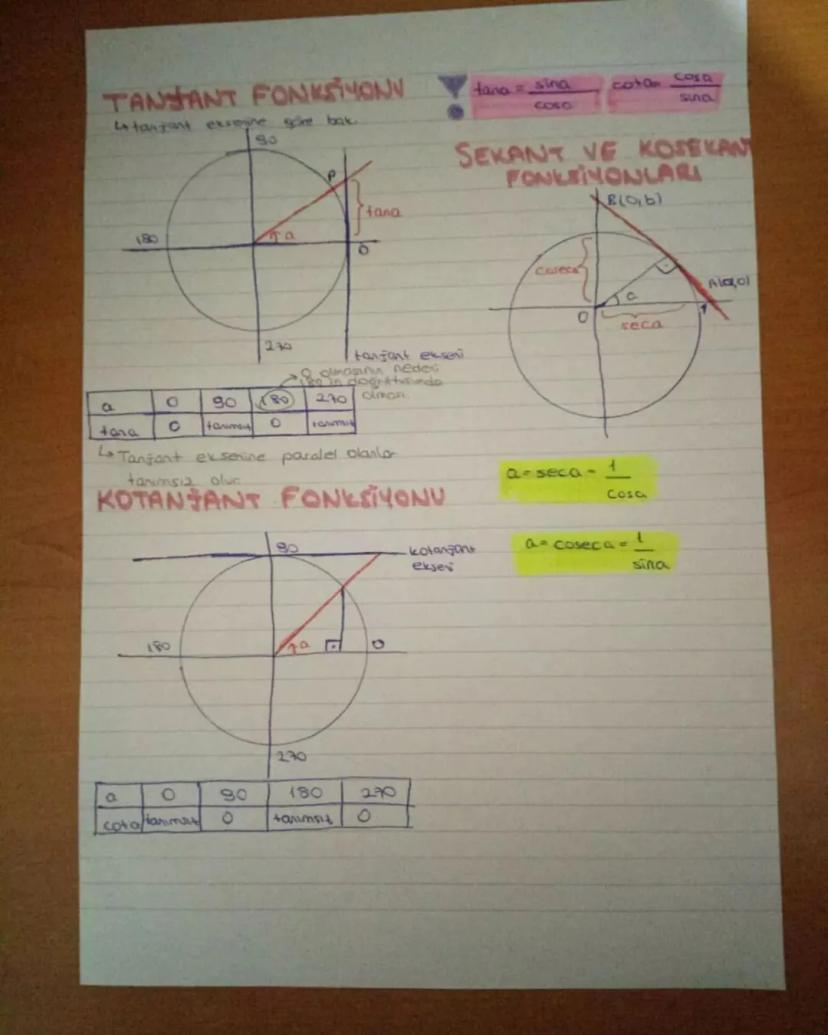 TANJANT FONKSİYONU
↳ tanjant eksenine göre bak.
90
P
tana
180
a
0
270
tanjant ekseni
0 olmasının nedeni
180'in doğrultusunda
olması
a 0 90 180 270
tana 0 tanımsız 0 tanımsız
↳ Tanjant eksenine paralel olanlar
tanımsız olur.
KOTANJANT FONKSİYONU
90
kotanjant
ekseni
180
a
0
270
a 0 90 180 270
cota tanımsız 0 tanımsız 0
! tana = sina / cosa
cota = cosa / sina
SEKANT VE KOSEKANT
FONKSİYONLARI
B(0,b)
coseca
A(a,0)
a
0
1
seca
a = seca = 1 / cosa
a = coseca = 1 / sina